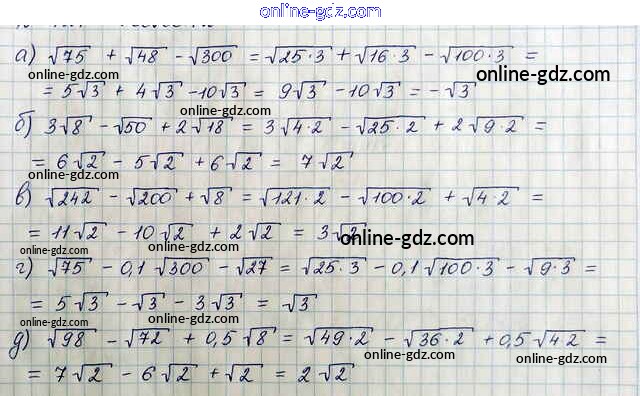 online-gdz.com
а) √75 + √48 - √300 = √25·3 + √16·3 - √100·3 =
online-gdz.com
online-gdz.com
= 5√3 + 4√3 - 10√3 = 9√3 - 10√3 = -√3
online-gdz.com
б) 3√8 - √50 + 2√18 = 3√4·2 - √25·2 + 2√9·2 =
= 6√2 - 5√2 + 6√2 = 7√2
online-gdz.com
online-gdz.com
в) √242 - √200 + √8 = √121·2 - √100·2 + √4·2 =
= 11√2 - 10√2 + 2√2 = 3√2
online-gdz.com
online-gdz.com
online-gdz.com
г) √75 - 0,1√300 - √27 = √25·3 - 0,1√100·3 - √9·3 =
= 5√3 - √3 - 3√3 = √3
online-gdz.com
online-gdz.com
д) √98 - √72 + 0,5√8 = √49·2 - √36·2 + 0,5√4·2 =
online-gdz.com
online-gdz.com
online-gdz.com
= 7√2 - 6√2 + √2 = 2√2